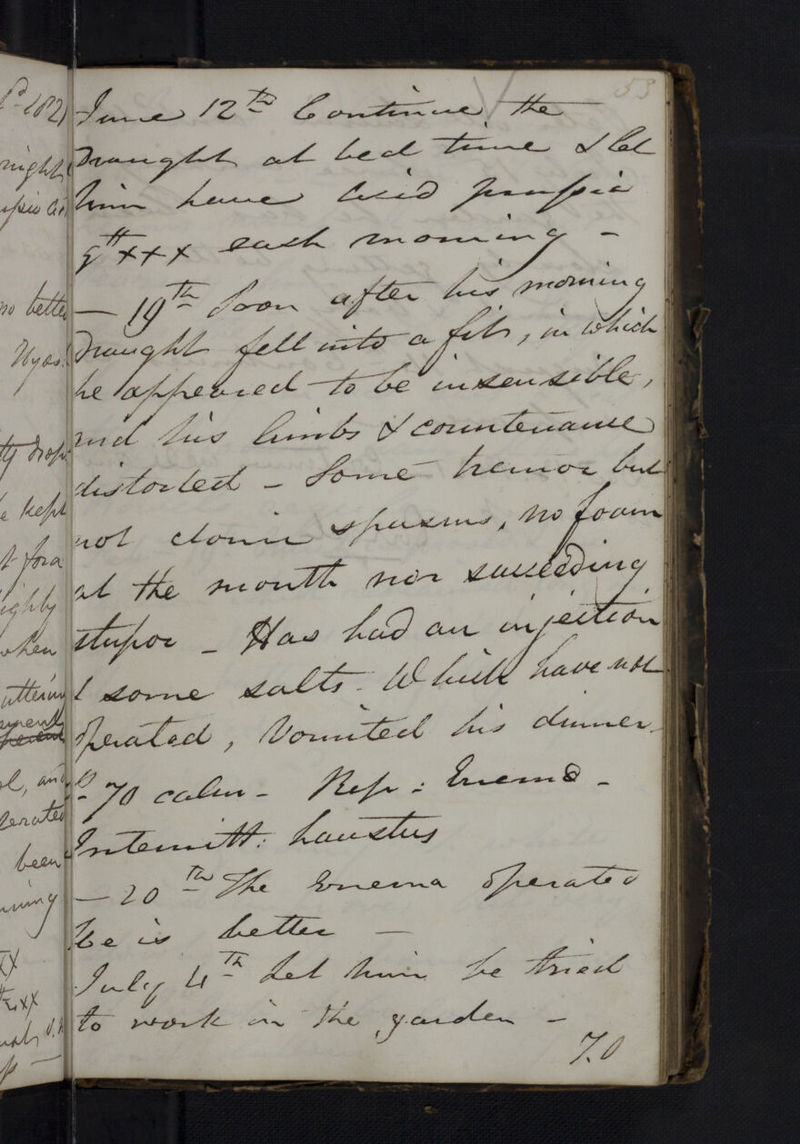 53
June 12th Continue the
Draught at bed time & let
him have Acid prussic
gtt xxx each morning -
— 19th Soon after his morning
Draught fell into a fit, in which
he appeared to be insensible,
and his limbs & countenance
distorted - Some tremor but
not clonic spasms, no foam
at the mouth nor succeeding
stupor - Has had an injection
& some salts. Which have not
operated, Vomited his dinner.
P. 70 calm - Rep: Enema -
Intermitt: haustus
— 20th The Enema operated
he is better —
July 4th Let him be tried
to work in the garden -
7.0
1821
night
no better
Hyos.
drops
kept
for a
ighly
when
uttering
and
operated
been
xx